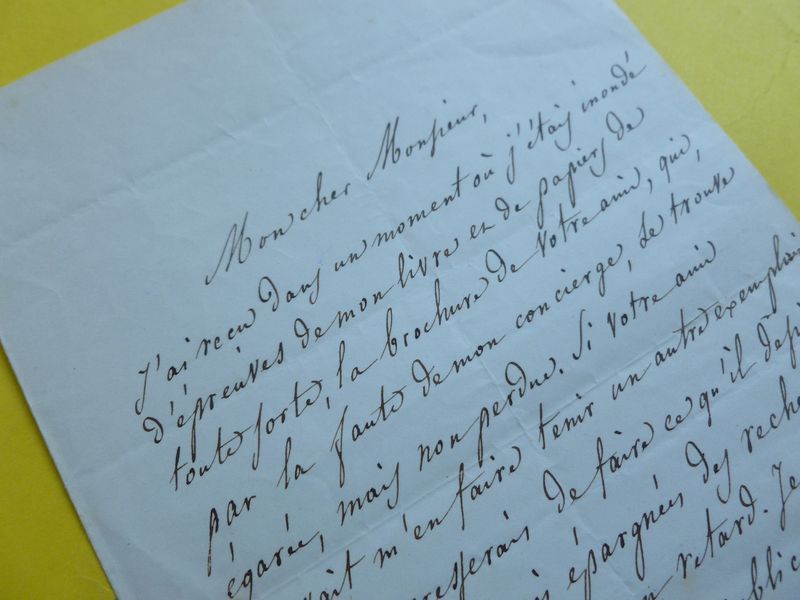 Mon cher Monsieur,
J'ai reçu dans un moment où j'étais inondé
d'épreuves de mon livre et de papiers de
toute sorte, la brochure de votre ami, qui,
par la faute de mon concierge, se trouve
égarée, mais non perdue. Si votre ami
m'en faire tenir un autre exemplaire
de faire ce qu'il
épargnées des
retard. Je